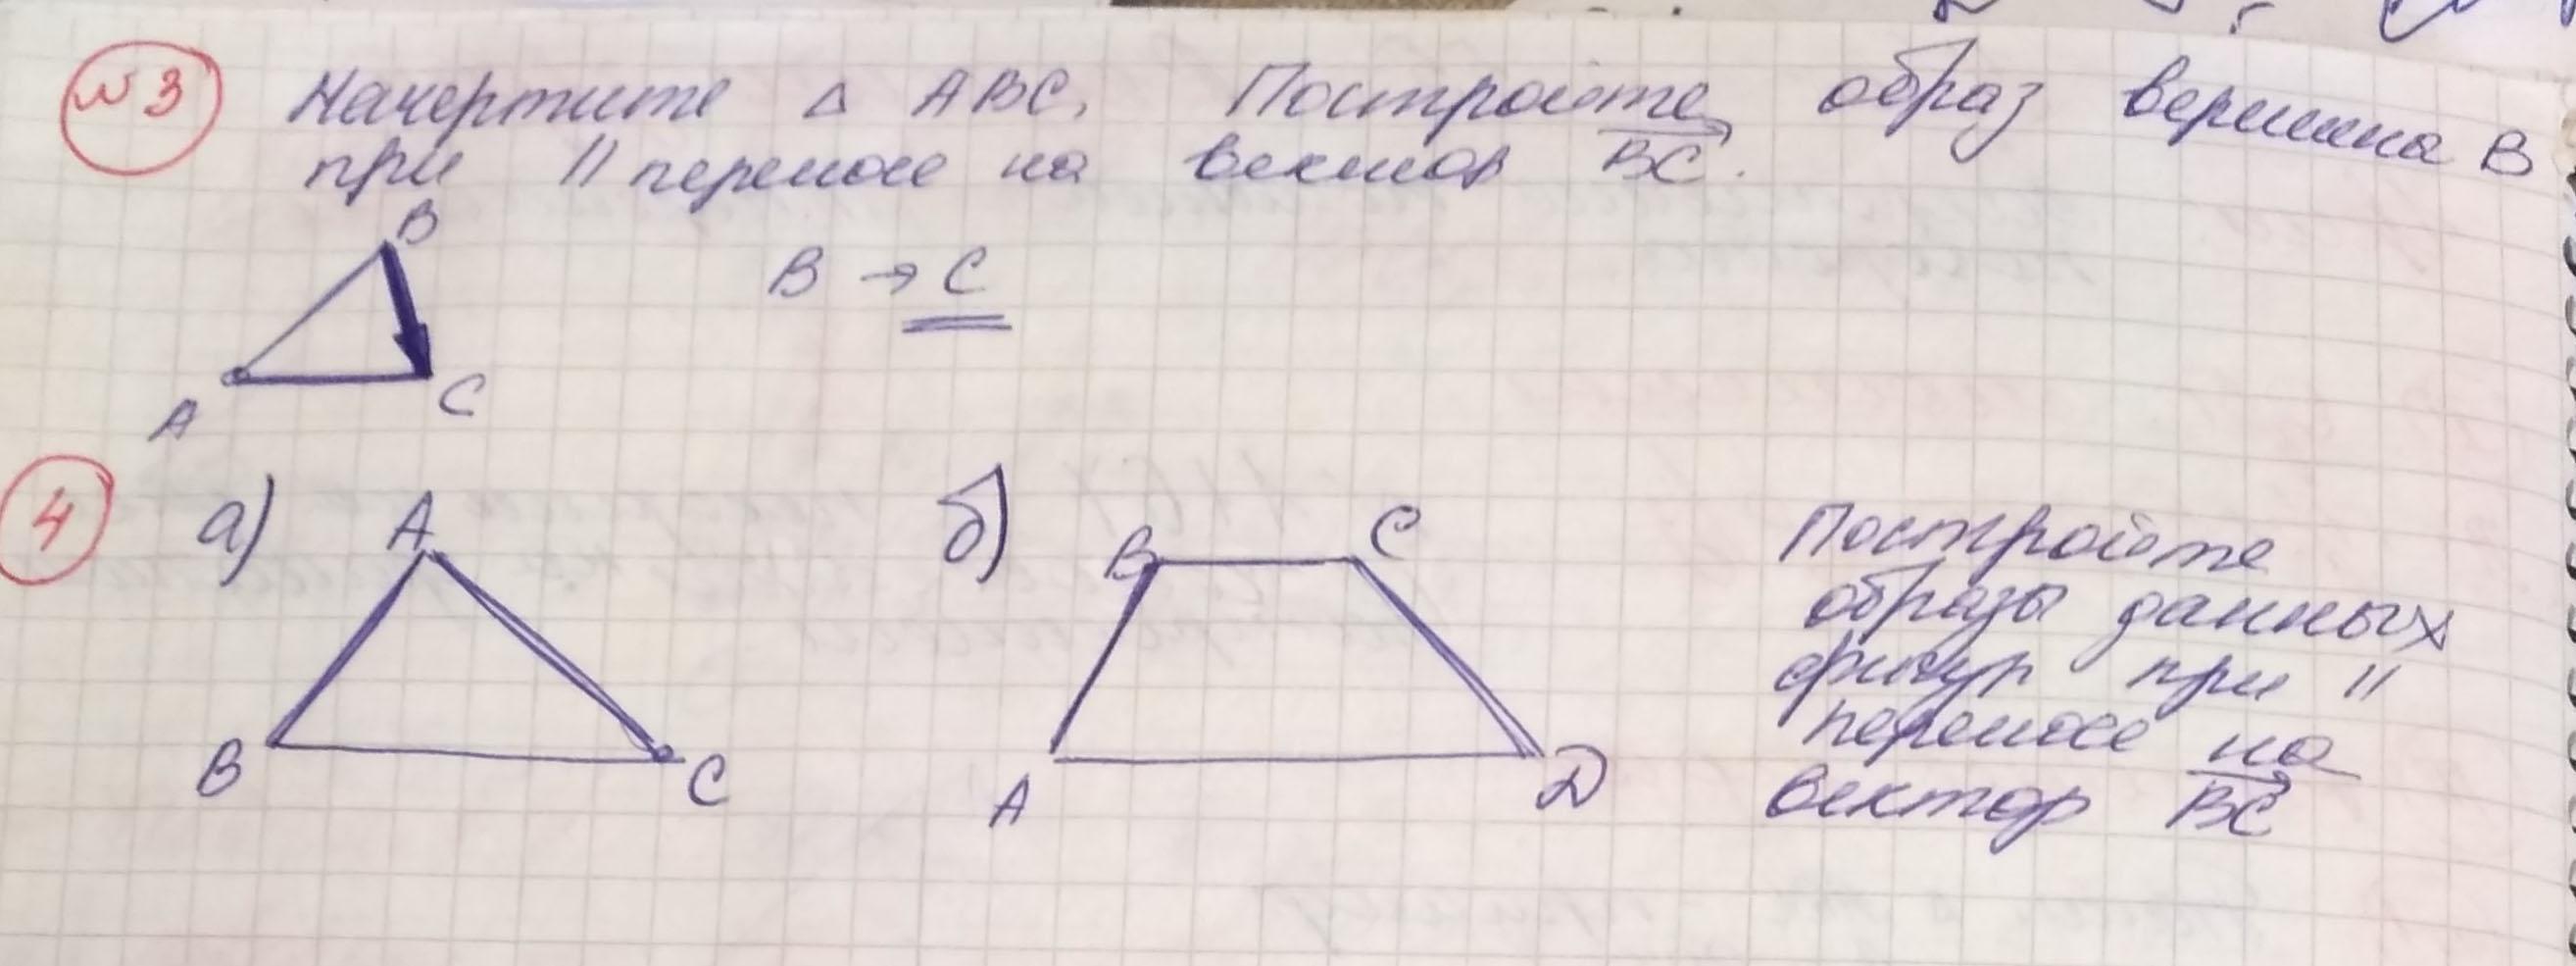 №3 Начертите △ ABC. Постройте образ вершина B
при || переносе на вектор BC.
B
B → C
A
C
4 а) A
B
C
б) B
C
A
D
Постройте
образы данных
фигур при ||
переносе на
вектор BC